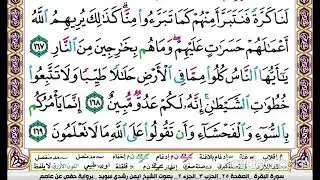 لَنَا كَرَّةً فَنَتَبَرَّأَ مِنْهُمْ كَمَا تَبَرَّءُوا۟ مِنَّا كَذَٰلِكَ يُرِيهِمُ ٱللَّهُ
أَعْمَٰلَهُمْ حَسَرَٰتٍ عَلَيْهِمْ وَمَا هُم بِخَٰرِجِينَ مِنَ ٱلنَّارِ ١٦٧
يَٰٓأَيُّهَا ٱلنَّاسُ كُلُوا۟ مِمَّا فِى ٱلْأَرْضِ حَلَٰلًا طَيِّبًا وَلَا تَتَّبِعُوا۟
خُطُوَٰتِ ٱلشَّيْطَٰنِ إِنَّهُۥ لَكُمْ عَدُوٌّ مُّبِينٌ ١٦٨ إِنَّمَا يَأْمُرُكُم
بِٱلسُّوٓءِ وَٱلْفَحْشَآءِ وَأَن تَقُولُوا۟ عَلَى ٱللَّهِ مَا لَا تَعْلَمُونَ ١٦٩
سورة البقرة الصفحة ٢٥ الحزب ٣ الجزء ٢ بصوت الشيخ أيمن رشدي سويد رواية حفص عن عاصم